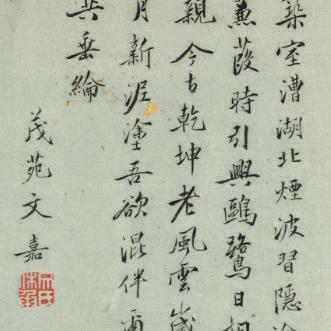 築室漕湖北煙波習隱
蒹葭時引興鷗鷺日相
親今古乾坤老風雲歲
月新泥塗吾欲混伴
共垂綸
茂苑文嘉
文氏休承